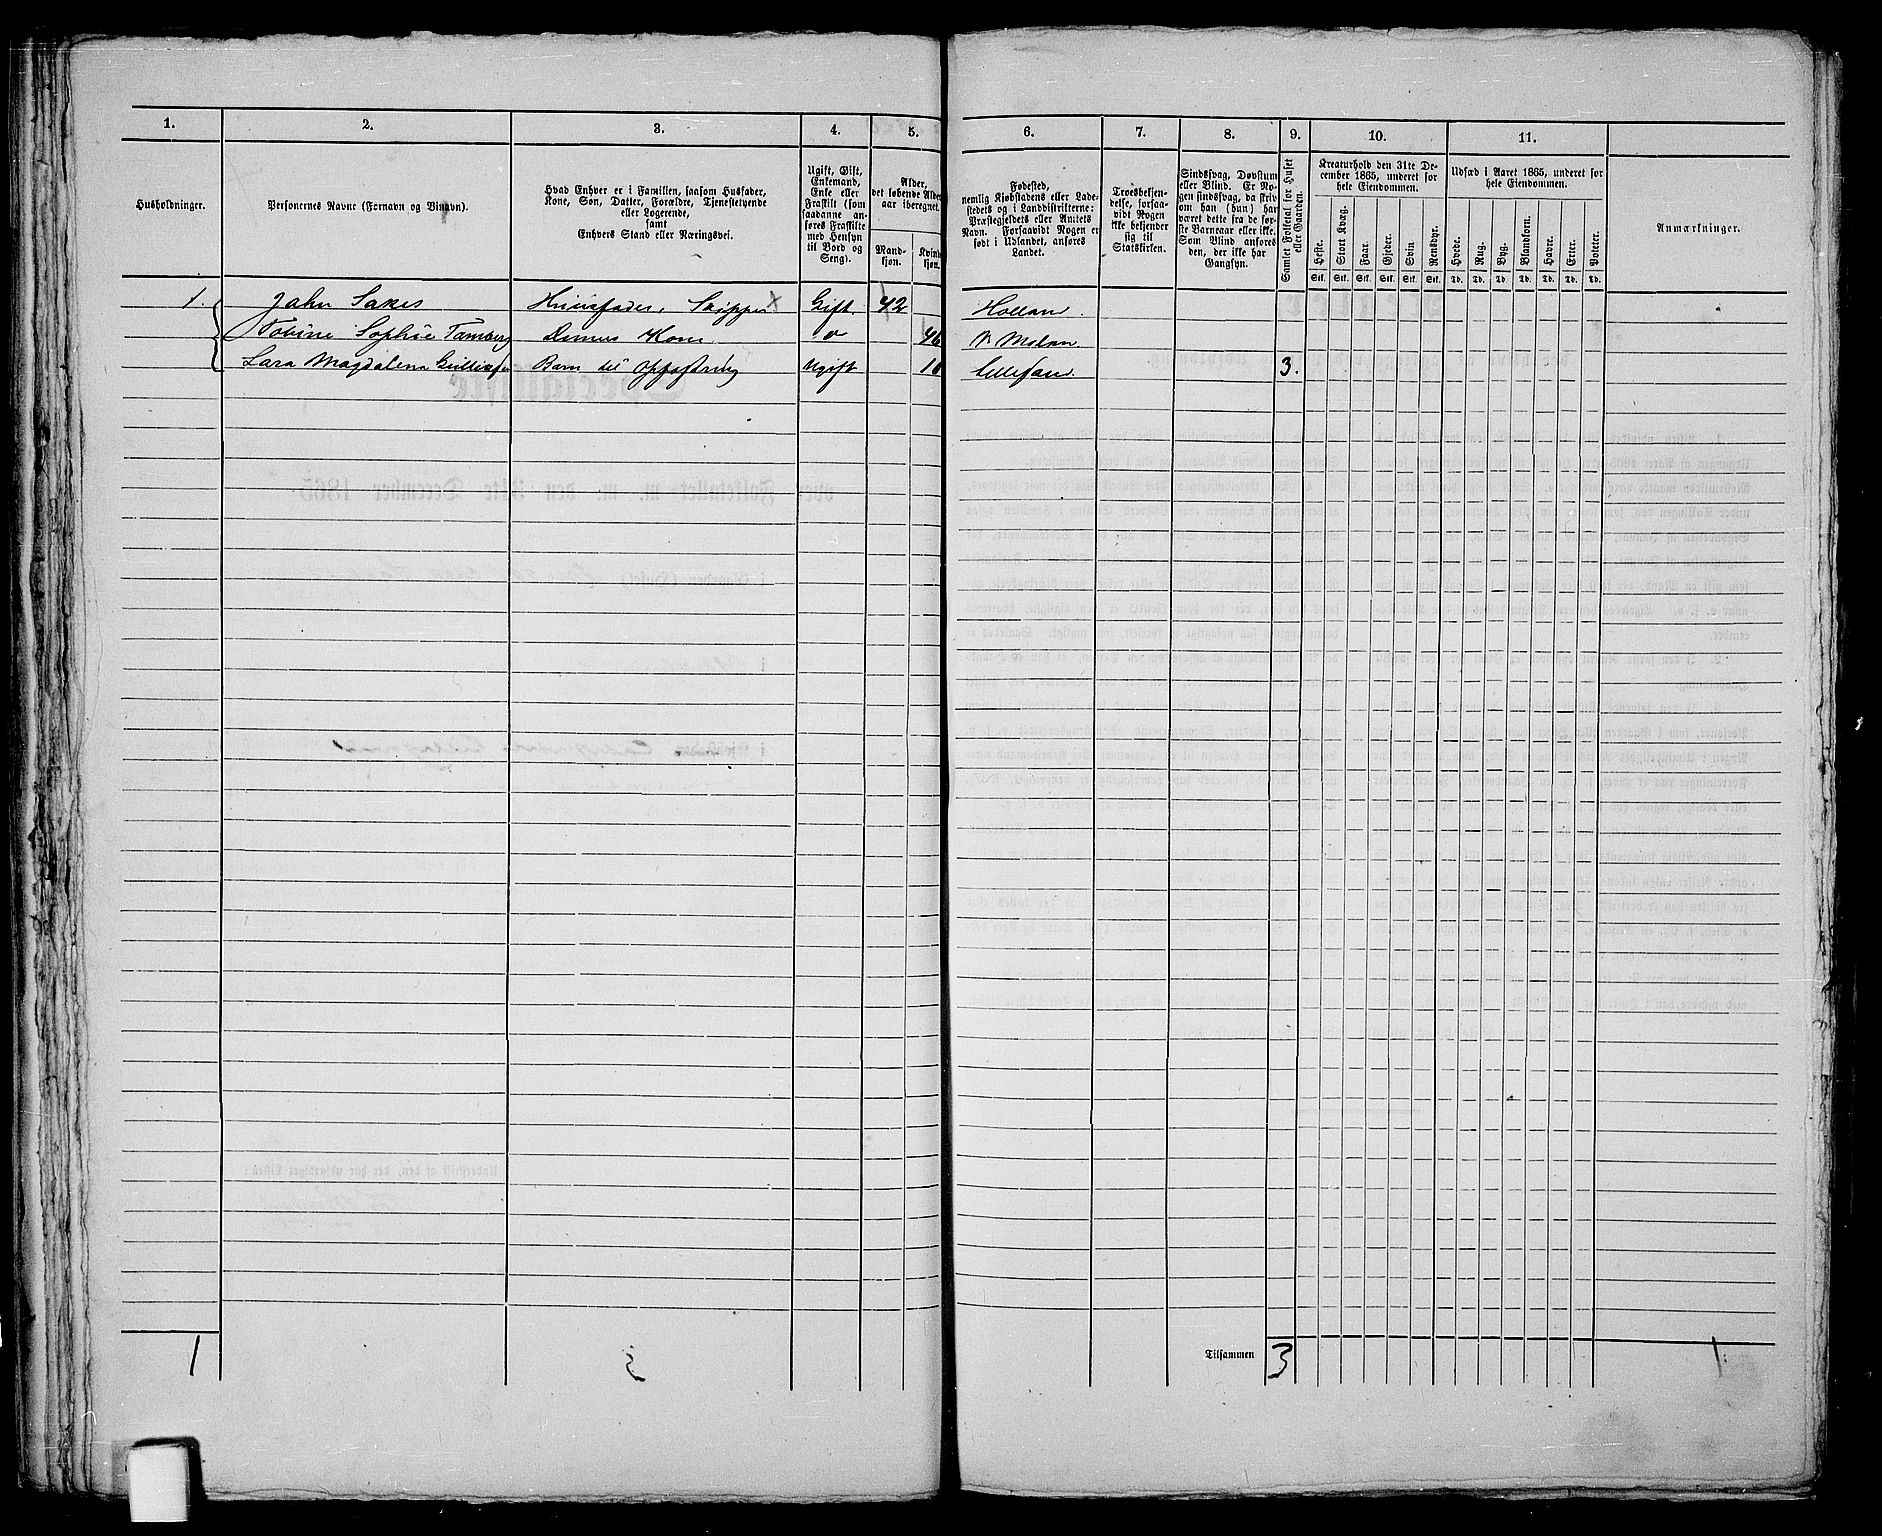 1. 2. 3. 4. 5. 6. 7. 8. 9. 10. 11.
Husholdninger.
Personernes Navne (Fornavn og Vinavn).
Hvad Enhver er i Familien, saasom Husfader,
Kone, Søn, Datter, Forældre, Tjenestetyende
eller Logerende,
samt
Enhvers Stand eller Næringsvei.
Ugift, Gift,
Enkemand,
Enke eller
Fraskilt (som
saadanne an-
føres Fraskilte
med Hensyn
til Bord og
Seng).
Alder,
det løbende Alders-
aar iberegnet.
Mand-
kjøn.
Kvinde
kjøn.
Fødested,
nemlig Kjøbstadens eller Lade-
stedets og i Landdistrikterne:
Præstegjeldets eller Amtets
Navn. Forsaavidt Nogen er
født i Udlandet, anføres
Landet.
Troesbekjen-
delse, forsaa-
vidt Nogen
ikke bekjender
sig til
Statskirken.
Sindssvag, Døvstum
eller Blind. Er No-
gen sindssvag, da skriv
om han (hun) har
været dette fra de før-
ste Barneaar eller ikke.
Som Blind anføres
den, der ikke har
Gangsyn.
Samlet Folketal for Huset
eller Gaarden.
Kreaturhold den 31te De-
cember 1865, underet for
hele Eiendommen.
Heste. Stort Kvæg. Faar. Gjeder. Svin. Rensdyr.
Stk. Stk. Stk. Stk. Stk. Stk.
Udsæd i Aaret 1865, underet for
hele Eiendommen.
Hvede. Rug. Byg. Blandkorn. Havre. Erter. Poteter.
Td. Td. Td. Td. Td. Td. Td.
Anmærkninger.
1. John Sakes Huusfader, Skipper x Gift 42 Holland
Tobine Sophie Tamberg Dennes Kone do 46 V Moland
Lara Magdalena Barn til Opfostring Ugift 10 Lillesand 3.
1 3 Tilsammen 3 1